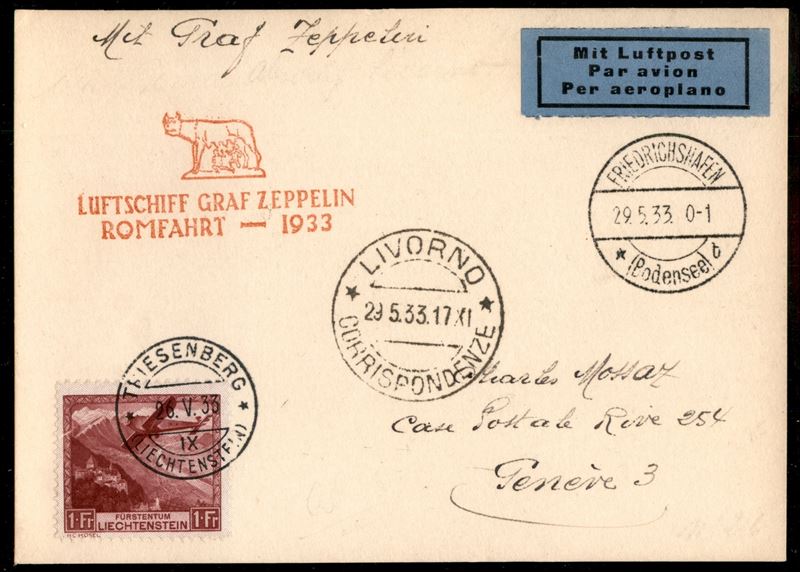 Mit Graf Zeppelin
Mit Luftpost
Par avion
Per aeroplano
LUFTSCHIFF GRAF ZEPPELIN
ROMFAHRT — 1933
FRIEDRICHSHAFEN
29.5.33. 0-1
* (Bodensee) b
* LIVORNO *
29.5.33.17 XI
CORRISPONDENZE
* TRIESENBERG *
26.V.33
IX
(LIECHTENSTEIN)
Charles Mossaz
Case Postale Rive 254
Genève 3
1 Fr FÜRSTENTUM 1 Fr
LIECHTENSTEIN